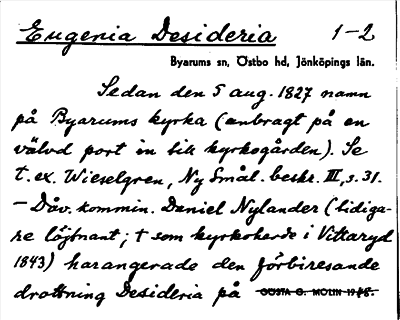 Eugenia Desideria 1-2
Byarums sn, Östbo hd, Jönköpings län.
Sedan den 5 aug. 1827 namn
på Byarums kyrka (anbragt på en
välvd port in till kyrkogården). Se
t. ex. Wieselgren, Ny Smål. beskr. III, s. 31.
– Dåv. kommin. Daniel Nylander (tidiga-
re löjtnant; † som kyrkoherde i Vittaryd
1843) harangerade den förbiresande
drottning Desideria på GÖSTA G. MOLIN